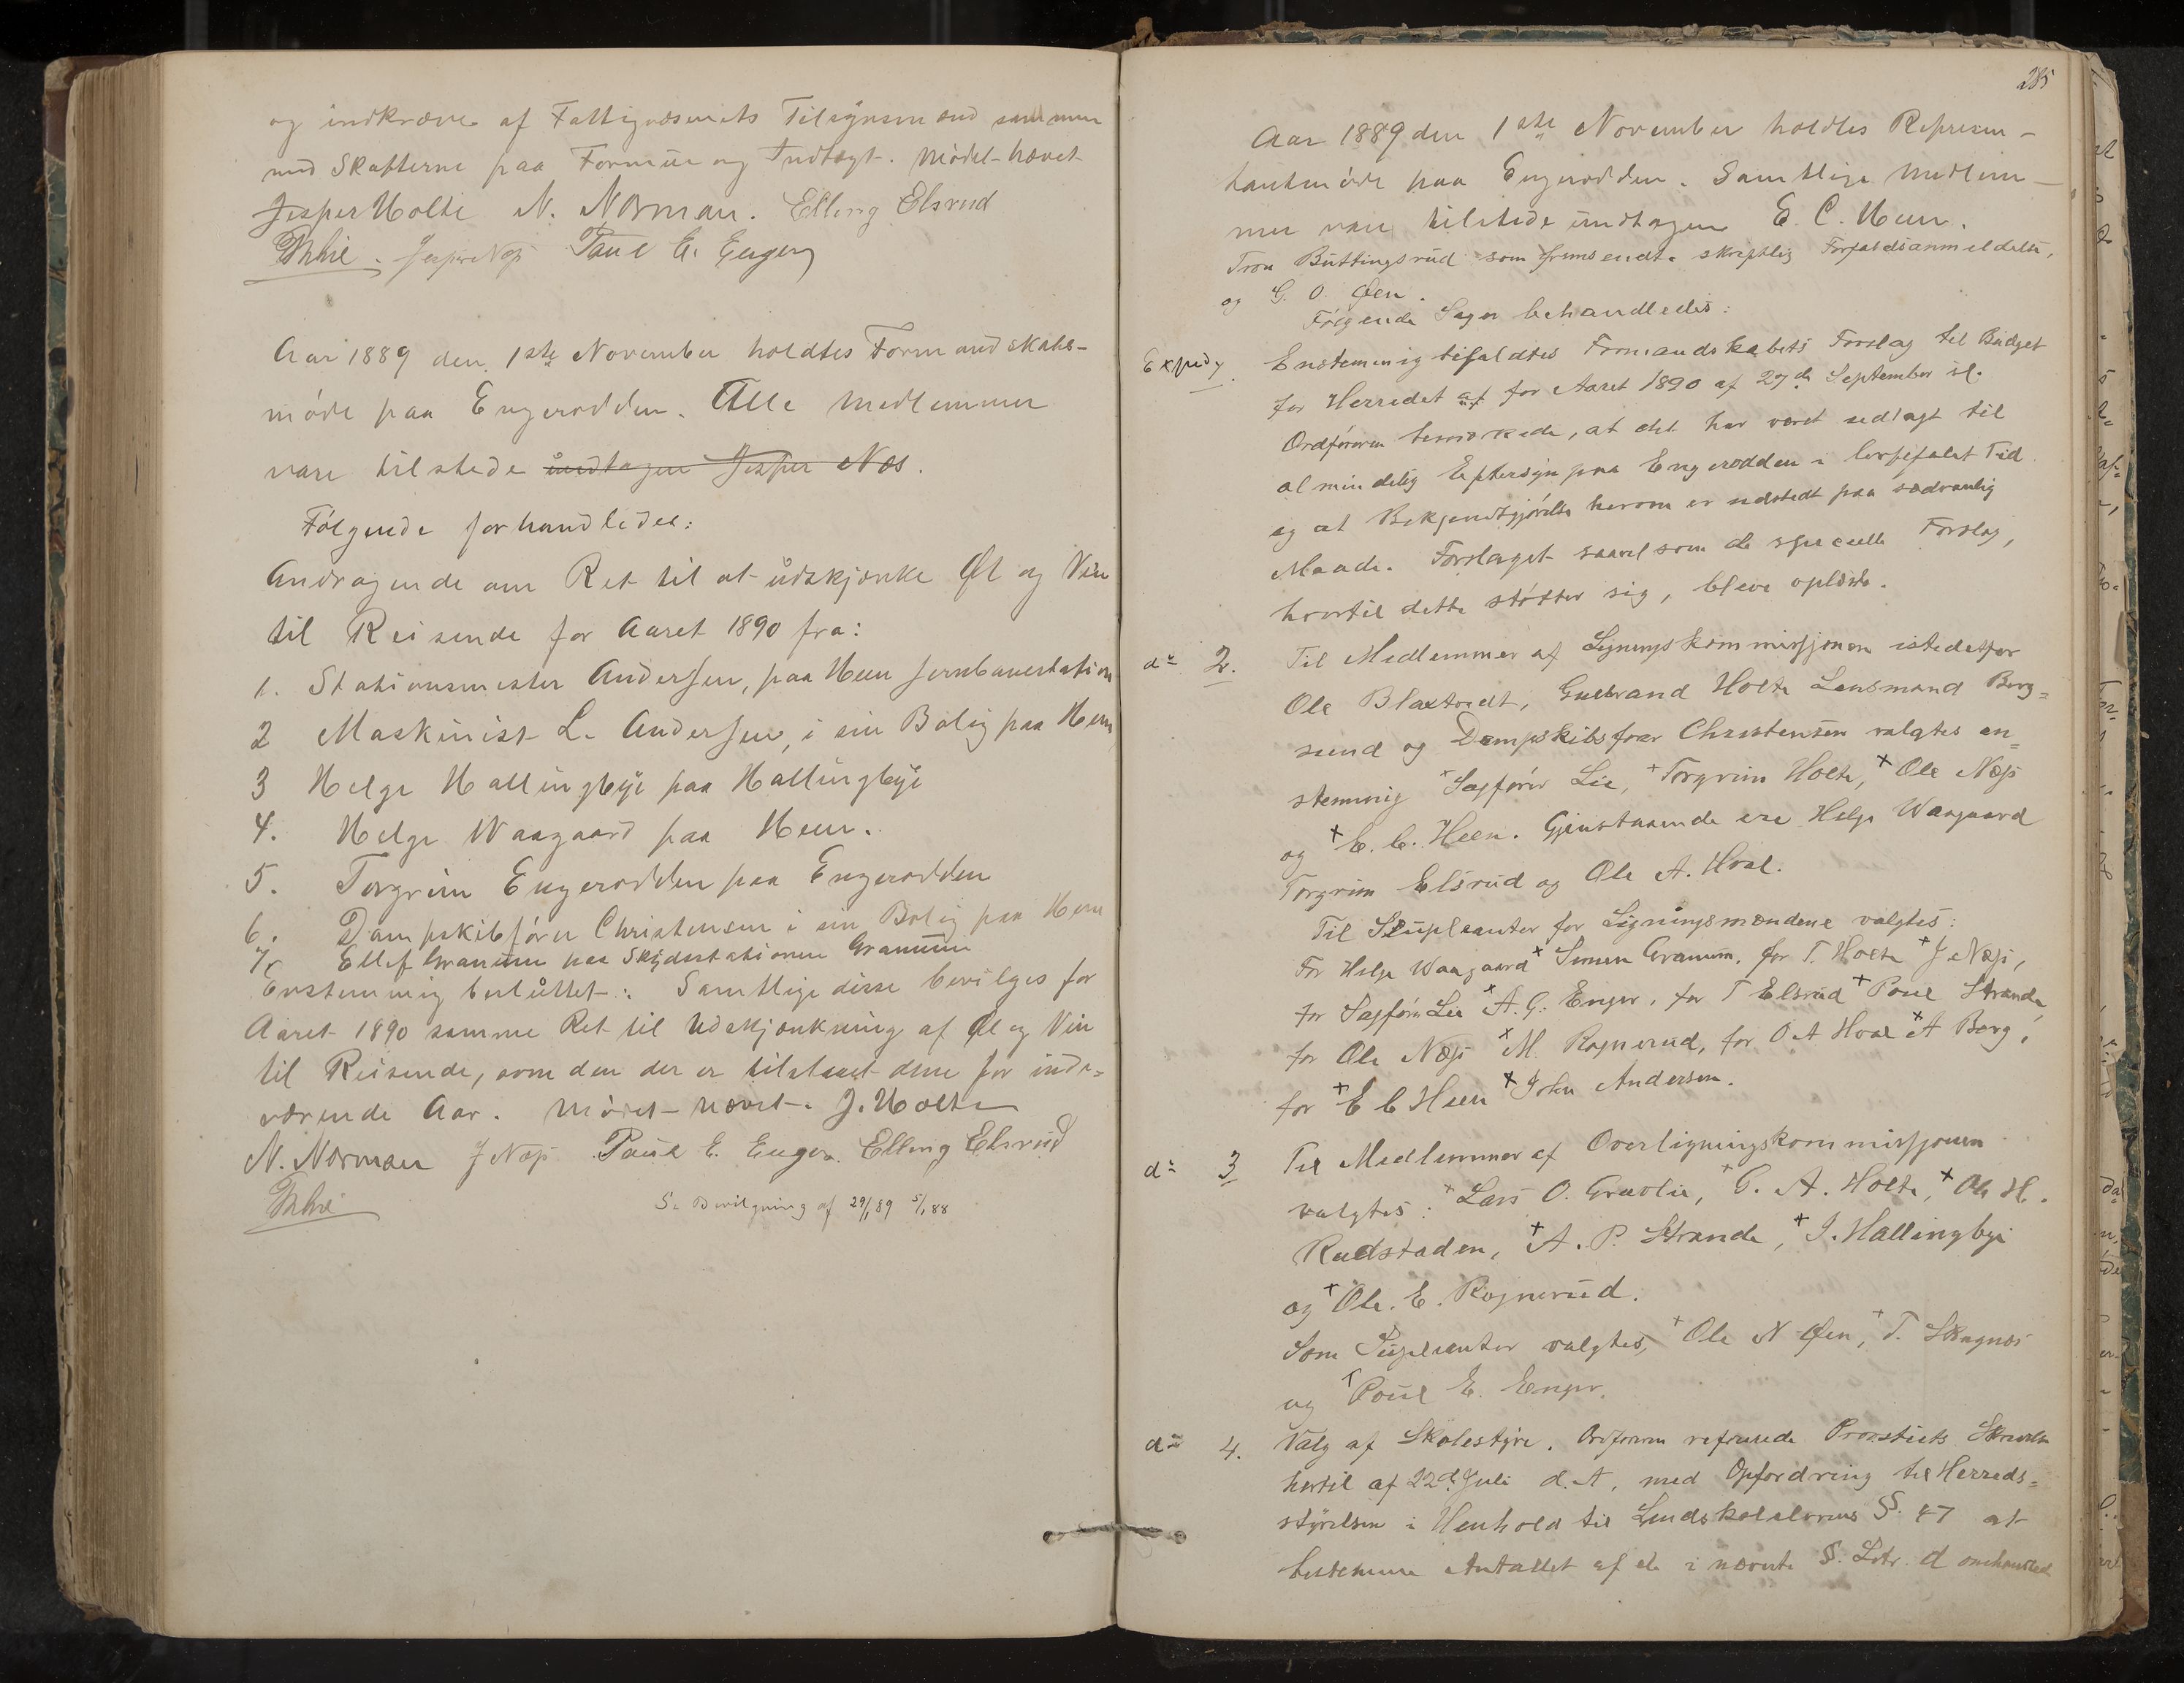 og indkræves af Fattigvæsenets Tilsynsmænd sammen
med Skatterne paa Formue og Indtægt. Mødet hævet
Jesper Holte N. Norman. Elling Elsrud
Jesper Næs Paul E. Enger
Aar 1889 den 1ste November holdtes Formandskabs-
møde paa Engerodden. Alle Medlemmer
vare tilstede undtagen Jesper Næs.
Følgende forhandledes:
Andragende om Ret til at udskjænke Øl og Vin
til Reisende for Aaret 1890 fra:
1. Stationsmester Andersen, paa Heen Jernbanestation
2 Maskinist L. Andersen, i sin Bolig paa Heen
3 Helge Hallingbye paa Hallingbye
4. Helge Waagaard paa Heen.
5. Torgrim Engerodden paa Engerodden
6. Dampskibsfører Christensen i sin Bolig paa Heen
7. Ellef Granum paa Skydsstationen Granum
Enstemmig besluttet: Samtlige disse bevilges for
Aaret 1890 samme Ret til Udskjænkning af Øl og Vin
til Reisende, som den der er tilstaaet dem for inde=
værende Aar. Mødet hævet. J. Holte
N. Norman J Næss Paul E. Enger. Elling Elsrud
Se Bevilgning af 29/1 89 5/1 88
285
Aar 1889 den 1ste November holdtes Represen-
tantmøde paa Engerodden. Samtlige Medlem-
mer vare tilstede undtagen E. C. Heen.
Tron Buttingsrud som fremsendte skriftlig Forfaldsanmeldelse,
og G. O. Øen.
Følgende Sager behandledes:
Exped. Enstemmig bifaldtes Formandskabets Forslag til Budget
for Herredet af for Aaret 1890 af 27de September sl.
Ordføreren bemærkede, at det har været udlagt til
almindelig Eftersyn paa Engerodden i lovbefalet Tid
og at Bekjendtgjørelse herom er udstedt paa sædvanlig
Maade. Forslaget saavel som de specielle Forslag,
hvortil dette støtter sig, bleve oplæste.
do 2. Til Medlemmer af Ligningskommissjonen istedetfor
Ole Blaxtvedt, Gulbrand Holte Lensmand Berg=
sund og Dampskibsfører Christensen valgtes en=
stemmig + Sagfører Lie, + Torgrim Holte, + Ole Næss
og + E. C. Heen. Gjenstaaende ere Helge Waagaard
Torgrim Elsrud og Ole A. Hval.
Til Supleanter for Ligningsmændene valgtes:
For Helge Waagaard + Simen Granum, for T. Holte + J Næss,
for Sagfører Lie + A. G. Enger, for T Elsrud + Poul Strande,
for Ole Næss + M. Rognerud, for O A Hval + A Berg,
for + E C Heen + John Andersen.
do 3 Til Medlemmer af Overligningskommissjonen
valgtes: + Lars O. Gravlie, + G. A. Holte, + Ole H.
Rudstaden, + A. P. Strande, + J. Hallingbye
og + Ole. E. Rognerud.
Som Supleanter valgtes, + Ole N Øen, + T. Skagnæs
og + Poul E. Enger.
do 4. Valg af Skolestyre. Ordføreren refererede Provstiets Skrivelse
hertil af 22de Juli d. A, med Opfordring til Herreds=
styrelsen i Henhold til Landskolelovens §. 47 at
bestemme Antallet af de i nævnte §. Litr. d omhandled